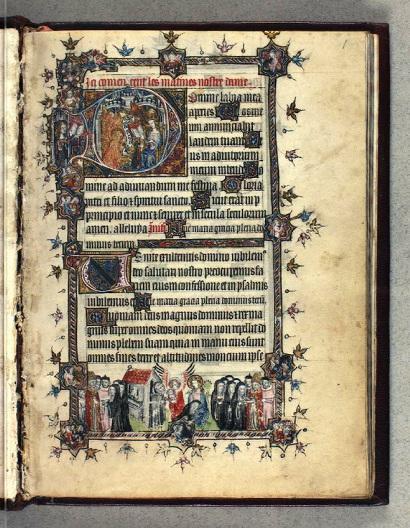 Ja comencent les matines nostre dame.
Domine labia mea
aperies Et os me
um annunciabit
laudem tuam
us in adiutorium
meum intende
mine ad adiuvandum me festina Gloria
patri et filio et spiritui sancto Sicut erat in p
principio et nunc et semper et in secula seculorum
amen. alleluya Ave maria gracia plena do
minus tecum
Venite exultemus domino iubilem
deo salutari nostro preocupemus fa
ciem eius in confessione et in psalmis
iubilemus ei Ave maria gracia plena dominus tecum
Quoniam deus magnus dominus et rex ma
gnus super omnes deos quoniam non repellet do
minus plebem suam quia in manu eius sunt
omnes fines terre et altitudines moncium ipse